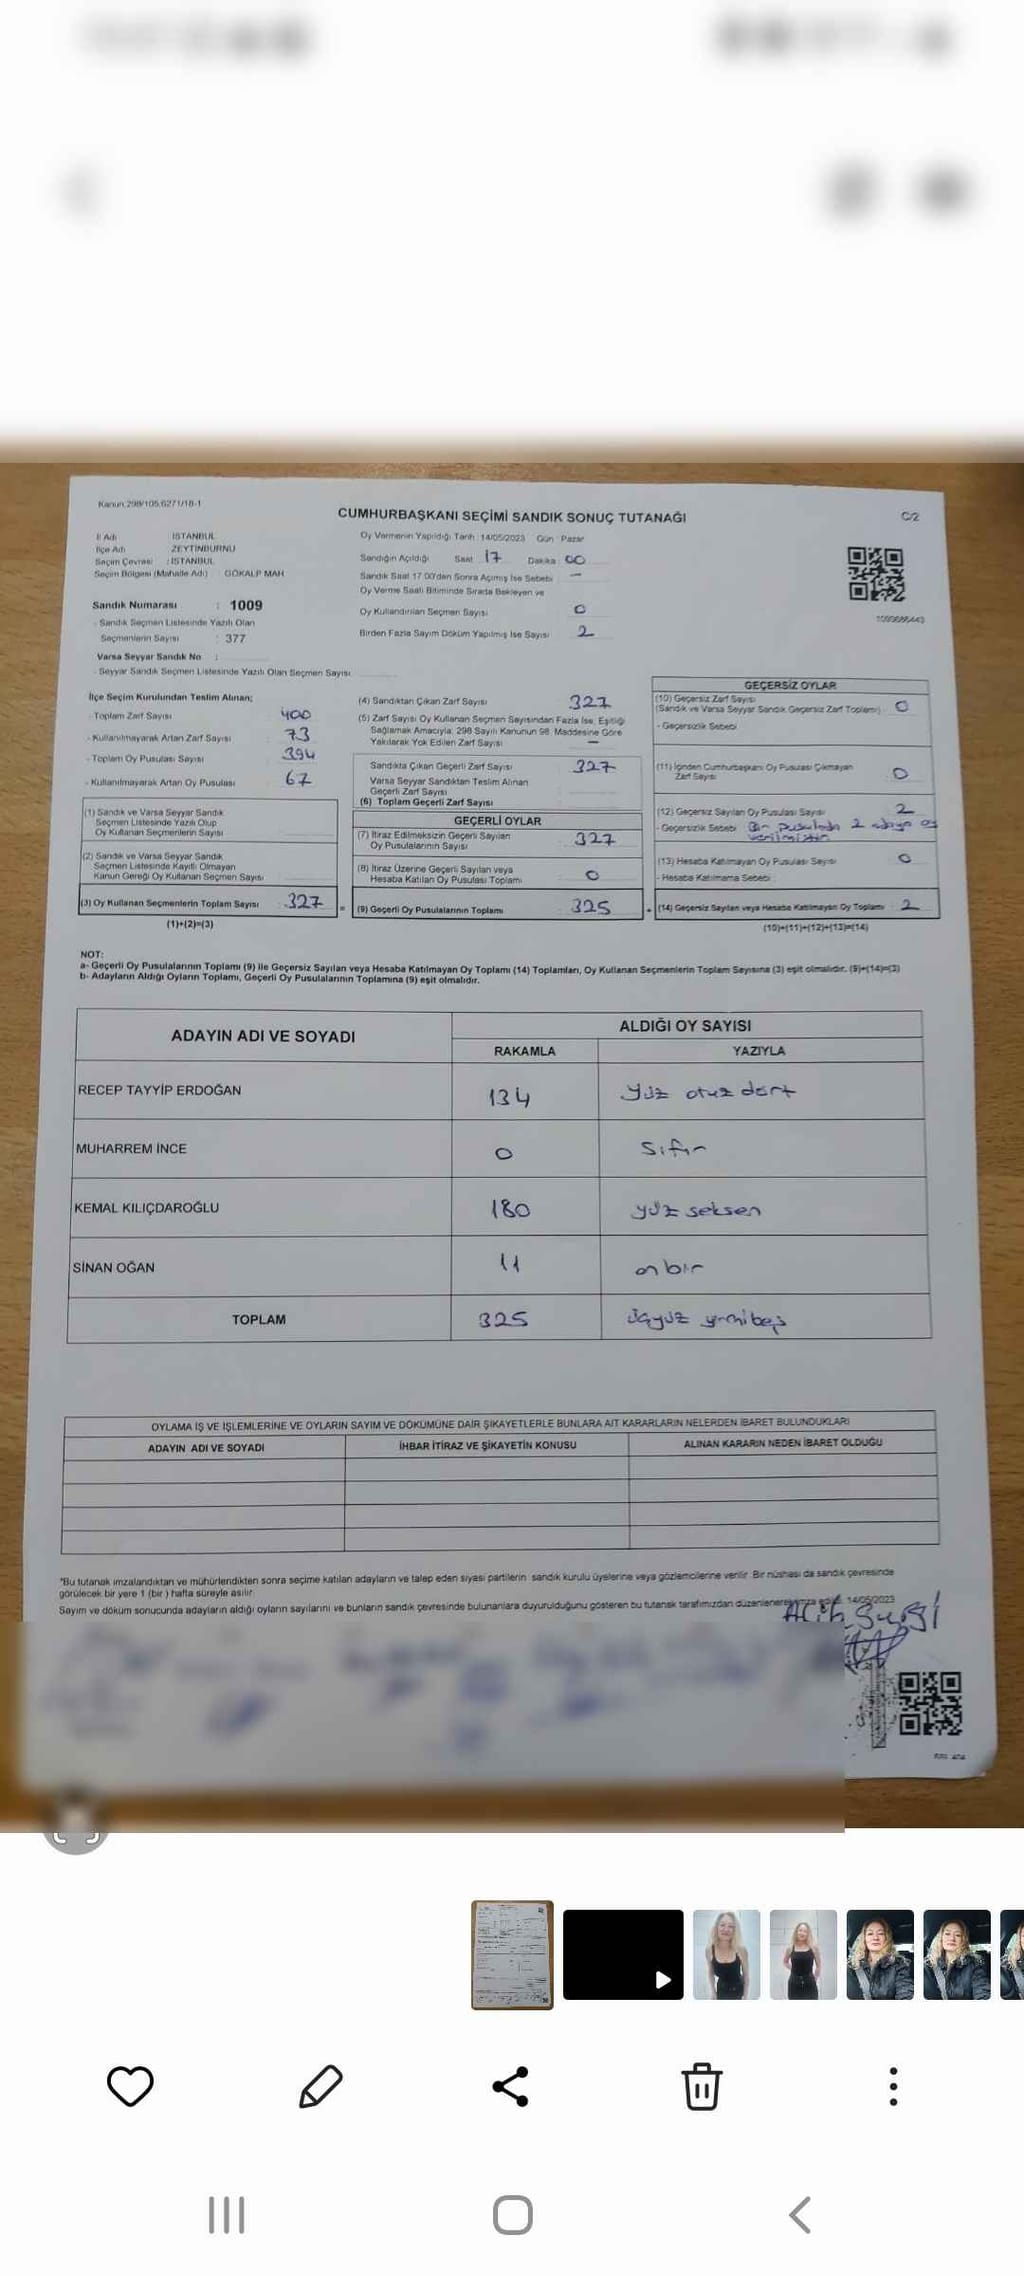 Kanun:298/105;6271/18-1
CUMHURBAŞKANI SEÇİMİ SANDIK SONUÇ TUTANAĞI
C/2
İl Adı : İSTANBUL
İlçe Adı : ZEYTİNBURNU
Seçim Çevresi : İSTANBUL
Seçim Bölgesi (Mahalle Adı) : GÖKALP MAH
Sandık Numarası : 1009
- Sandık Seçmen Listesinde Yazılı Olan
Seçmenlerin Sayısı : 377
Varsa Seyyar Sandık No :
- Seyyar Sandık Seçmen Listesinde Yazılı Olan Seçmen Sayısı
Oy Vermenin Yapıldığı Tarih : 14/05/2023 Gün : Pazar
Sandığın Açıldığı Saat 17 Dakika 00
Sandık Saat 17.00'den Sonra Açılmış İse Sebebi -
Oy Verme Saati Bitiminde Sırada Bekleyen ve
Oy Kullandırılan Seçmen Sayısı 0
Birden Fazla Sayım Döküm Yapılmış İse Sayısı 2
1093686443
İlçe Seçim Kurulundan Teslim Alınan;
- Toplam Zarf Sayısı 400
- Kullanılmayarak Artan Zarf Sayısı : 73
- Toplam Oy Pusulası Sayısı 394
- Kullanılmayarak Artan Oy Pusulası : 67
(1) Sandık ve Varsa Seyyar Sandık
Seçmen Listesinde Yazılı Olup
Oy Kullanan Seçmenlerin Sayısı
(2) Sandık ve Varsa Seyyar Sandık
Seçmen Listesinde Kayıtlı Olmayan
Kanun Gereği Oy Kullanan Seçmen Sayısı
(3) Oy Kullanan Seçmenlerin Toplam Sayısı 327
(1)+(2)=(3)
(4) Sandıktan Çıkan Zarf Sayısı 327
(5) Zarf Sayısı Oy Kullanan Seçmen Sayısından Fazla İse, Eşitliği
Sağlamak Amacıyla, 298 Sayılı Kanunun 98. Maddesine Göre
Yakılarak Yok Edilen Zarf Sayısı -
Sandıkta Çıkan Geçerli Zarf Sayısı 327
Varsa Seyyar Sandıktan Teslim Alınan
Geçerli Zarf Sayısı
(6) Toplam Geçerli Zarf Sayısı
GEÇERLİ OYLAR
(7) İtiraz Edilmeksizin Geçerli Sayılan
Oy Pusulalarının Sayısı 327
(8) İtiraz Üzerine Geçerli Sayılan veya
Hesaba Katılan Oy Pusulası Toplamı 0
= (9) Geçerli Oy Pusulalarının Toplamı 325
GEÇERSİZ OYLAR
(10) Geçersiz Zarf Sayısı
(Sandık ve Varsa Seyyar Sandık Geçersiz Zarf Toplamı) : 0
- Geçersizlik Sebebi
(11) İçinden Cumhurbaşkanı Oy Pusulası Çıkmayan
Zarf Sayısı 0
(12) Geçersiz Sayılan Oy Pusulası Sayısı 2
- Geçersizlik Sebebi Bir pusulada 2 adaya oy
verilmiştir.
(13) Hesaba Katılmayan Oy Pusulası Sayısı 0
- Hesaba Katılmama Sebebi :
+ (14) Geçersiz Sayılan veya Hesaba Katılmayan Oy Toplamı : 2
(10)+(11)+(12)+(13)=(14)
NOT:
a- Geçerli Oy Pusulalarının Toplamı (9) ile Geçersiz Sayılan veya Hesaba Katılmayan Oy Toplamı (14) Toplamları, Oy Kullanan Seçmenlerin Toplam Sayısına (3) eşit olmalıdır. (9)+(14)=(3)
b- Adayların Aldığı Oyların Toplamı, Geçerli Oy Pusulalarının Toplamına (9) eşit olmalıdır.
ADAYIN ADI VE SOYADI
ALDIĞI OY SAYISI
RAKAMLA YAZIYLA
RECEP TAYYİP ERDOĞAN 134 yüz otuz dört
MUHARREM İNCE 0 sıfır
KEMAL KILIÇDAROĞLU 180 yüz seksen
SİNAN OĞAN 11 onbir
TOPLAM 325 üçyüz yirmibeş
OYLAMA İŞ VE İŞLEMLERİNE VE OYLARIN SAYIM VE DÖKÜMÜNE DAİR ŞİKAYETLERLE BUNLARA AİT KARARLARIN NELERDEN İBARET BULUNDUKLARI
ADAYIN ADI VE SOYADI İHBAR İTİRAZ VE ŞİKAYETİN KONUSU ALINAN KARARIN NEDEN İBARET OLDUĞU
*Bu tutanak imzalandıktan ve mühürlendikten sonra seçime katılan adayların ve talep eden siyasi partilerin sandık kurulu üyelerine veya gözlemcilerine verilir. Bir nüshası da sandık çevresinde
görülecek bir yere 1 (bir) hafta süreyle asılır.
Sayım ve döküm sonucunda adayların aldığı oyların sayılarını ve bunların sandık çevresinde bulunanlara duyurulduğunu gösteren bu tutanak tarafımızdan düzenlenerek imza edildi. 14/05/2023